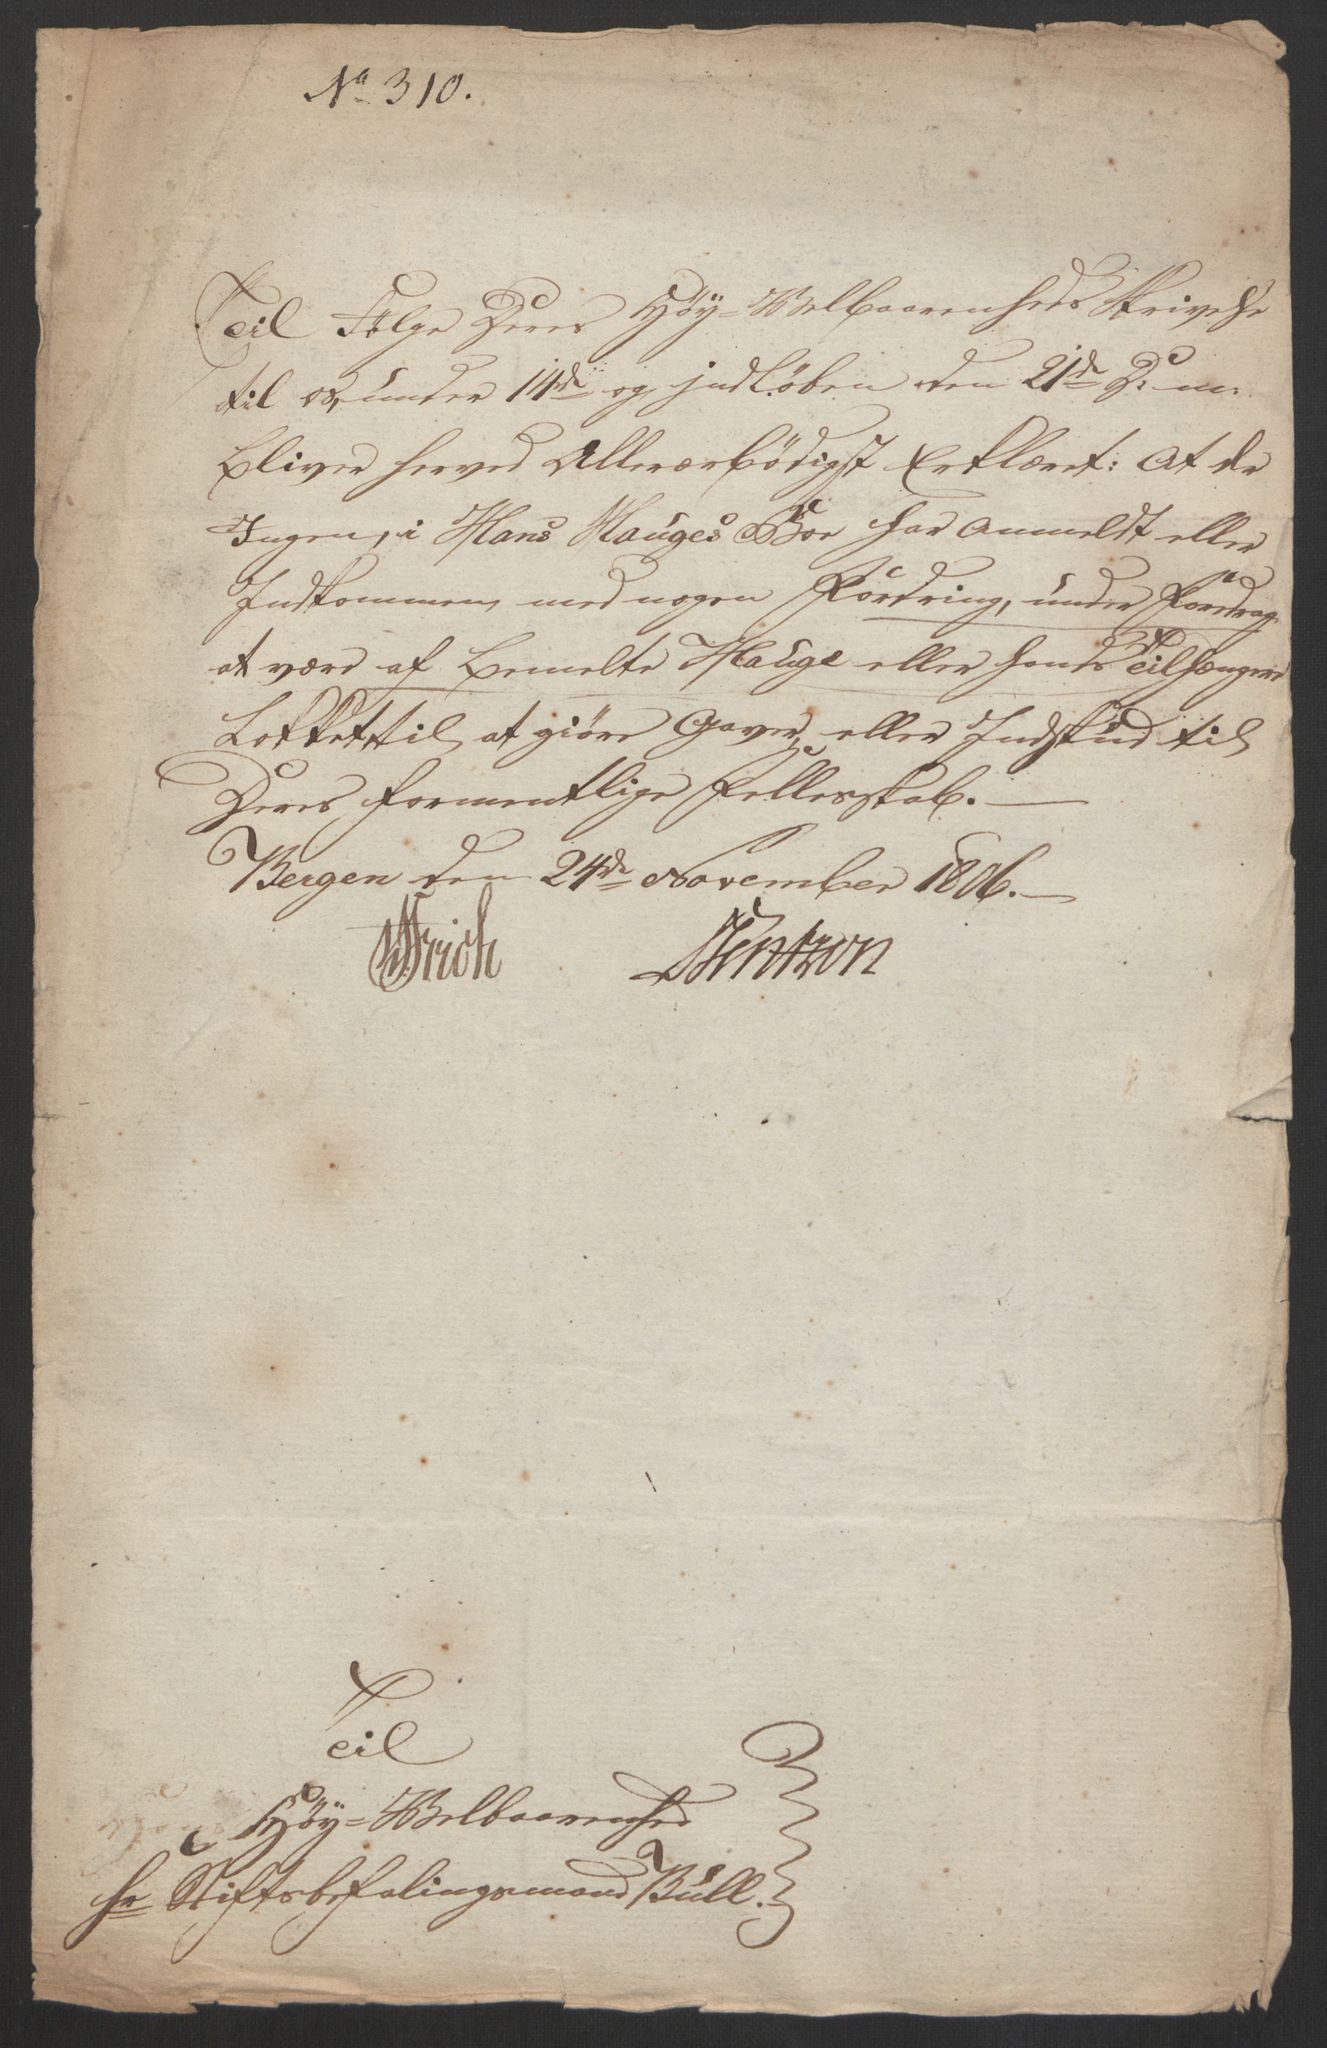 No 310.
Til Følge Deres Høy-Welbaarenheds Skrivelse
til os, under 14de og indløben den 21de D: m:
bliver herved Allerærbödigst Erklæret: At der
Ingen, i Hans Hauges Boe har anmeldt eller
Indkommen med nogen Fordring, under Foredrag
at være af bemelte Hauge eller hands Tilhængere
Lokket til at giöre Gaver, eller Indskud til
Deres formentlige Fellesskab.
Bergen den 24de November 1806.
Til
Höy-Welbaarenhed
hr Stiftsbefalingsmand Bull.